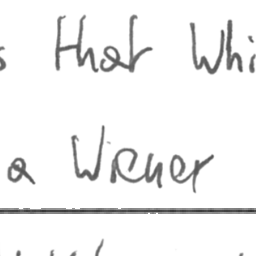 s that Whi
a Wiener